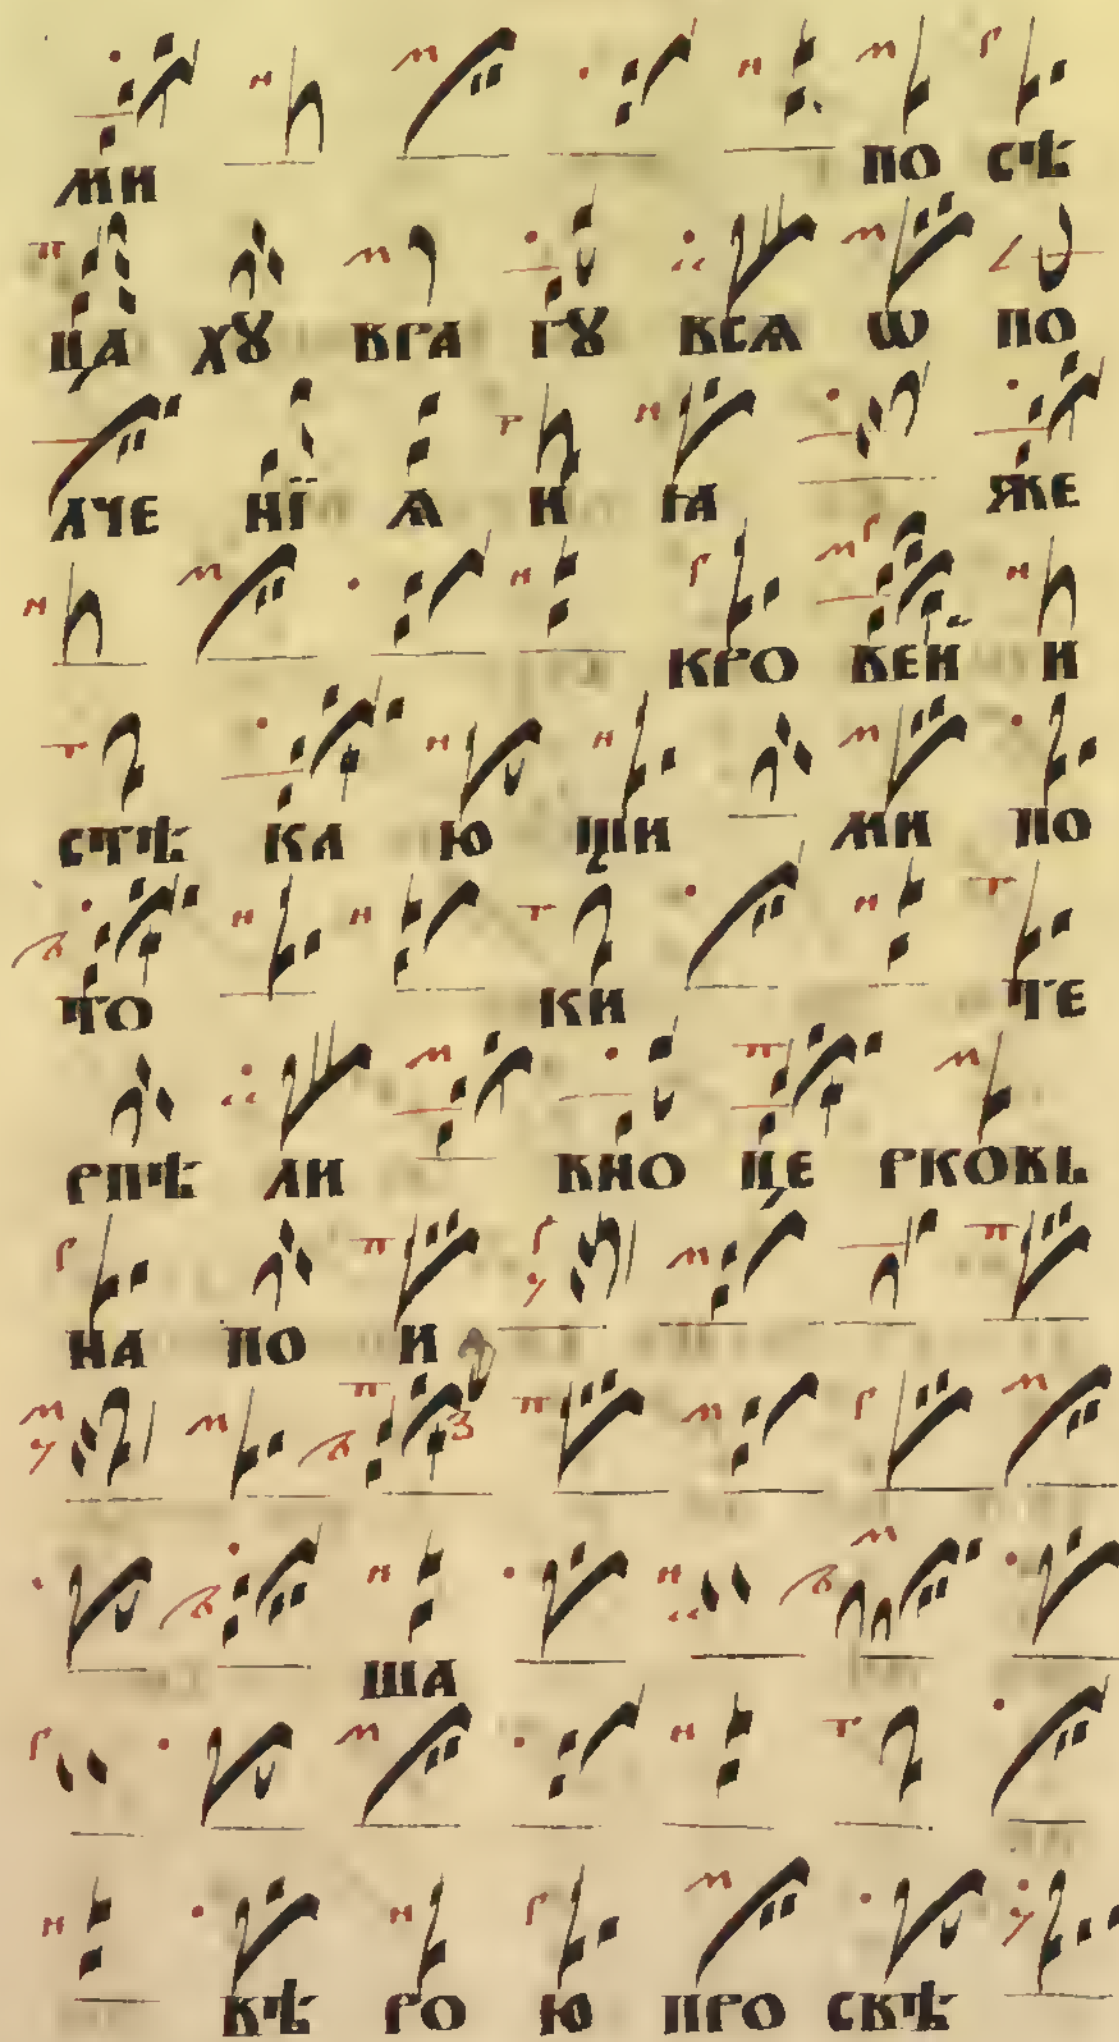 ми по сѣ
ца хꙋ вра гꙋ всѧ ѡ по
лче нї ѧ и ꙗ же
кро вей и
стѣ ка ю щи ми по
то ки те
рпѣ ли вно це рковь
на по и
ша
вѣ ро ю про свѣ